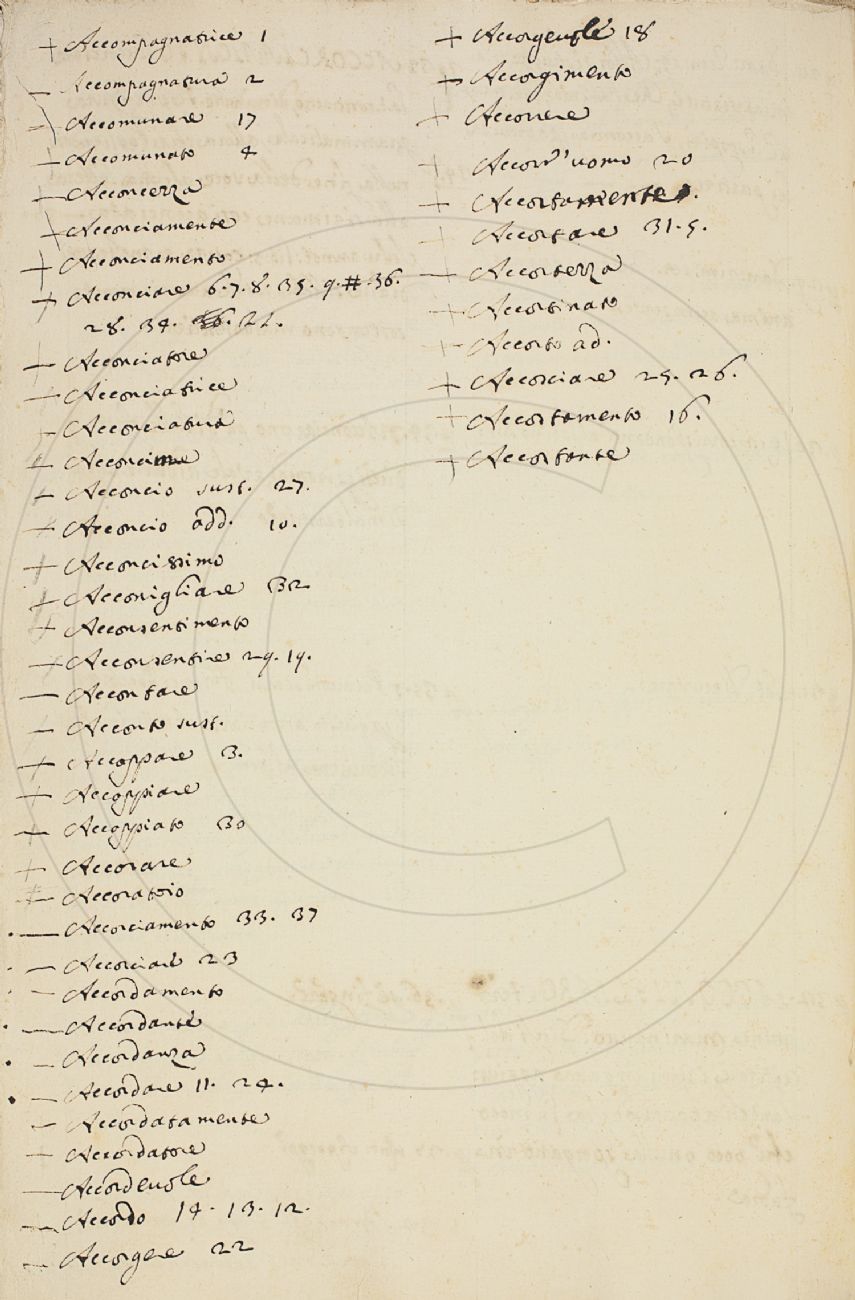 + Accompagnatrice 1
— Accompagnatura 2
— Accomunare 17
+ Accomunato 4
+ Acconcezza
+ Acconciamente
+ Acconciamento
+ Acconciare 6. 7. 8. 35. 9. # . 36.
28. 34. 21.
+ Acconciatore
— Acconciatrice
+ Acconciatura
+ Acconcime
+ Acconcio sust. 27.
+ Acconcio add. 10.
+ Acconcissimo
+ Acconigliare 32
+ Acconsentimento
+ Acconsentire 29. 19.
— Accontare
— Acconto sust.
+ Accoppare 3.
+ Accoppiare
+ Accoppiato 30
+ Accorare
+ Accoratoio
— Accorciamento 33. 37
— Accorciare 23
— Accordamento
— Accordante
— Accordanza
— Accordare 11. 24.
— Accordatamente
— Accordatore
— Accordevole
— Accordo 14. 13. 12.
— Accorgere 22
+ Accorgevole 18
+ Accorgimento
+ Accorrere
+ Accorr'uomo 20
+ Accortamente
+ Accortare 31. 5.
— Accortezza
+ Accortinato
+ Accorto ad.
+ Accosciare 25. 26.
+ Accostamento 16.
+ Accostante